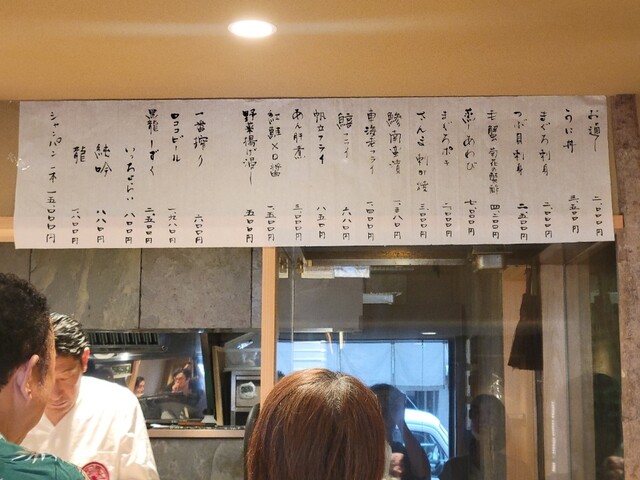 お通し 一、〇〇〇円
うに丼 三、五〇〇円
まぐろ刺身 二、〇〇〇円
つぶ貝刺身 二、五〇〇円
毛蟹 菊花の酢 四、二〇〇円
蒸しあわび 七、〇〇〇円
まぐろポキ 二、〇〇〇円
さんま刺 三、〇〇〇円
鯵南蛮漬 一、三八〇円
車海老フライ 一、四〇〇円
鱚フライ 六八〇円
帆立フライ 八五〇円
あん肝煮 三、〇〇〇円
紅鮭XO醤 一、五〇〇円
野菜揚げ浸し 五〇〇円
一番搾り 六〇〇円
ロココビール 一、九八〇円
黒龍しずく 二、五〇〇円
いっちょらい 八〇〇円
純吟 八八〇円
龍 一、八〇〇円
シャンパン一本 一五〇〇〇円